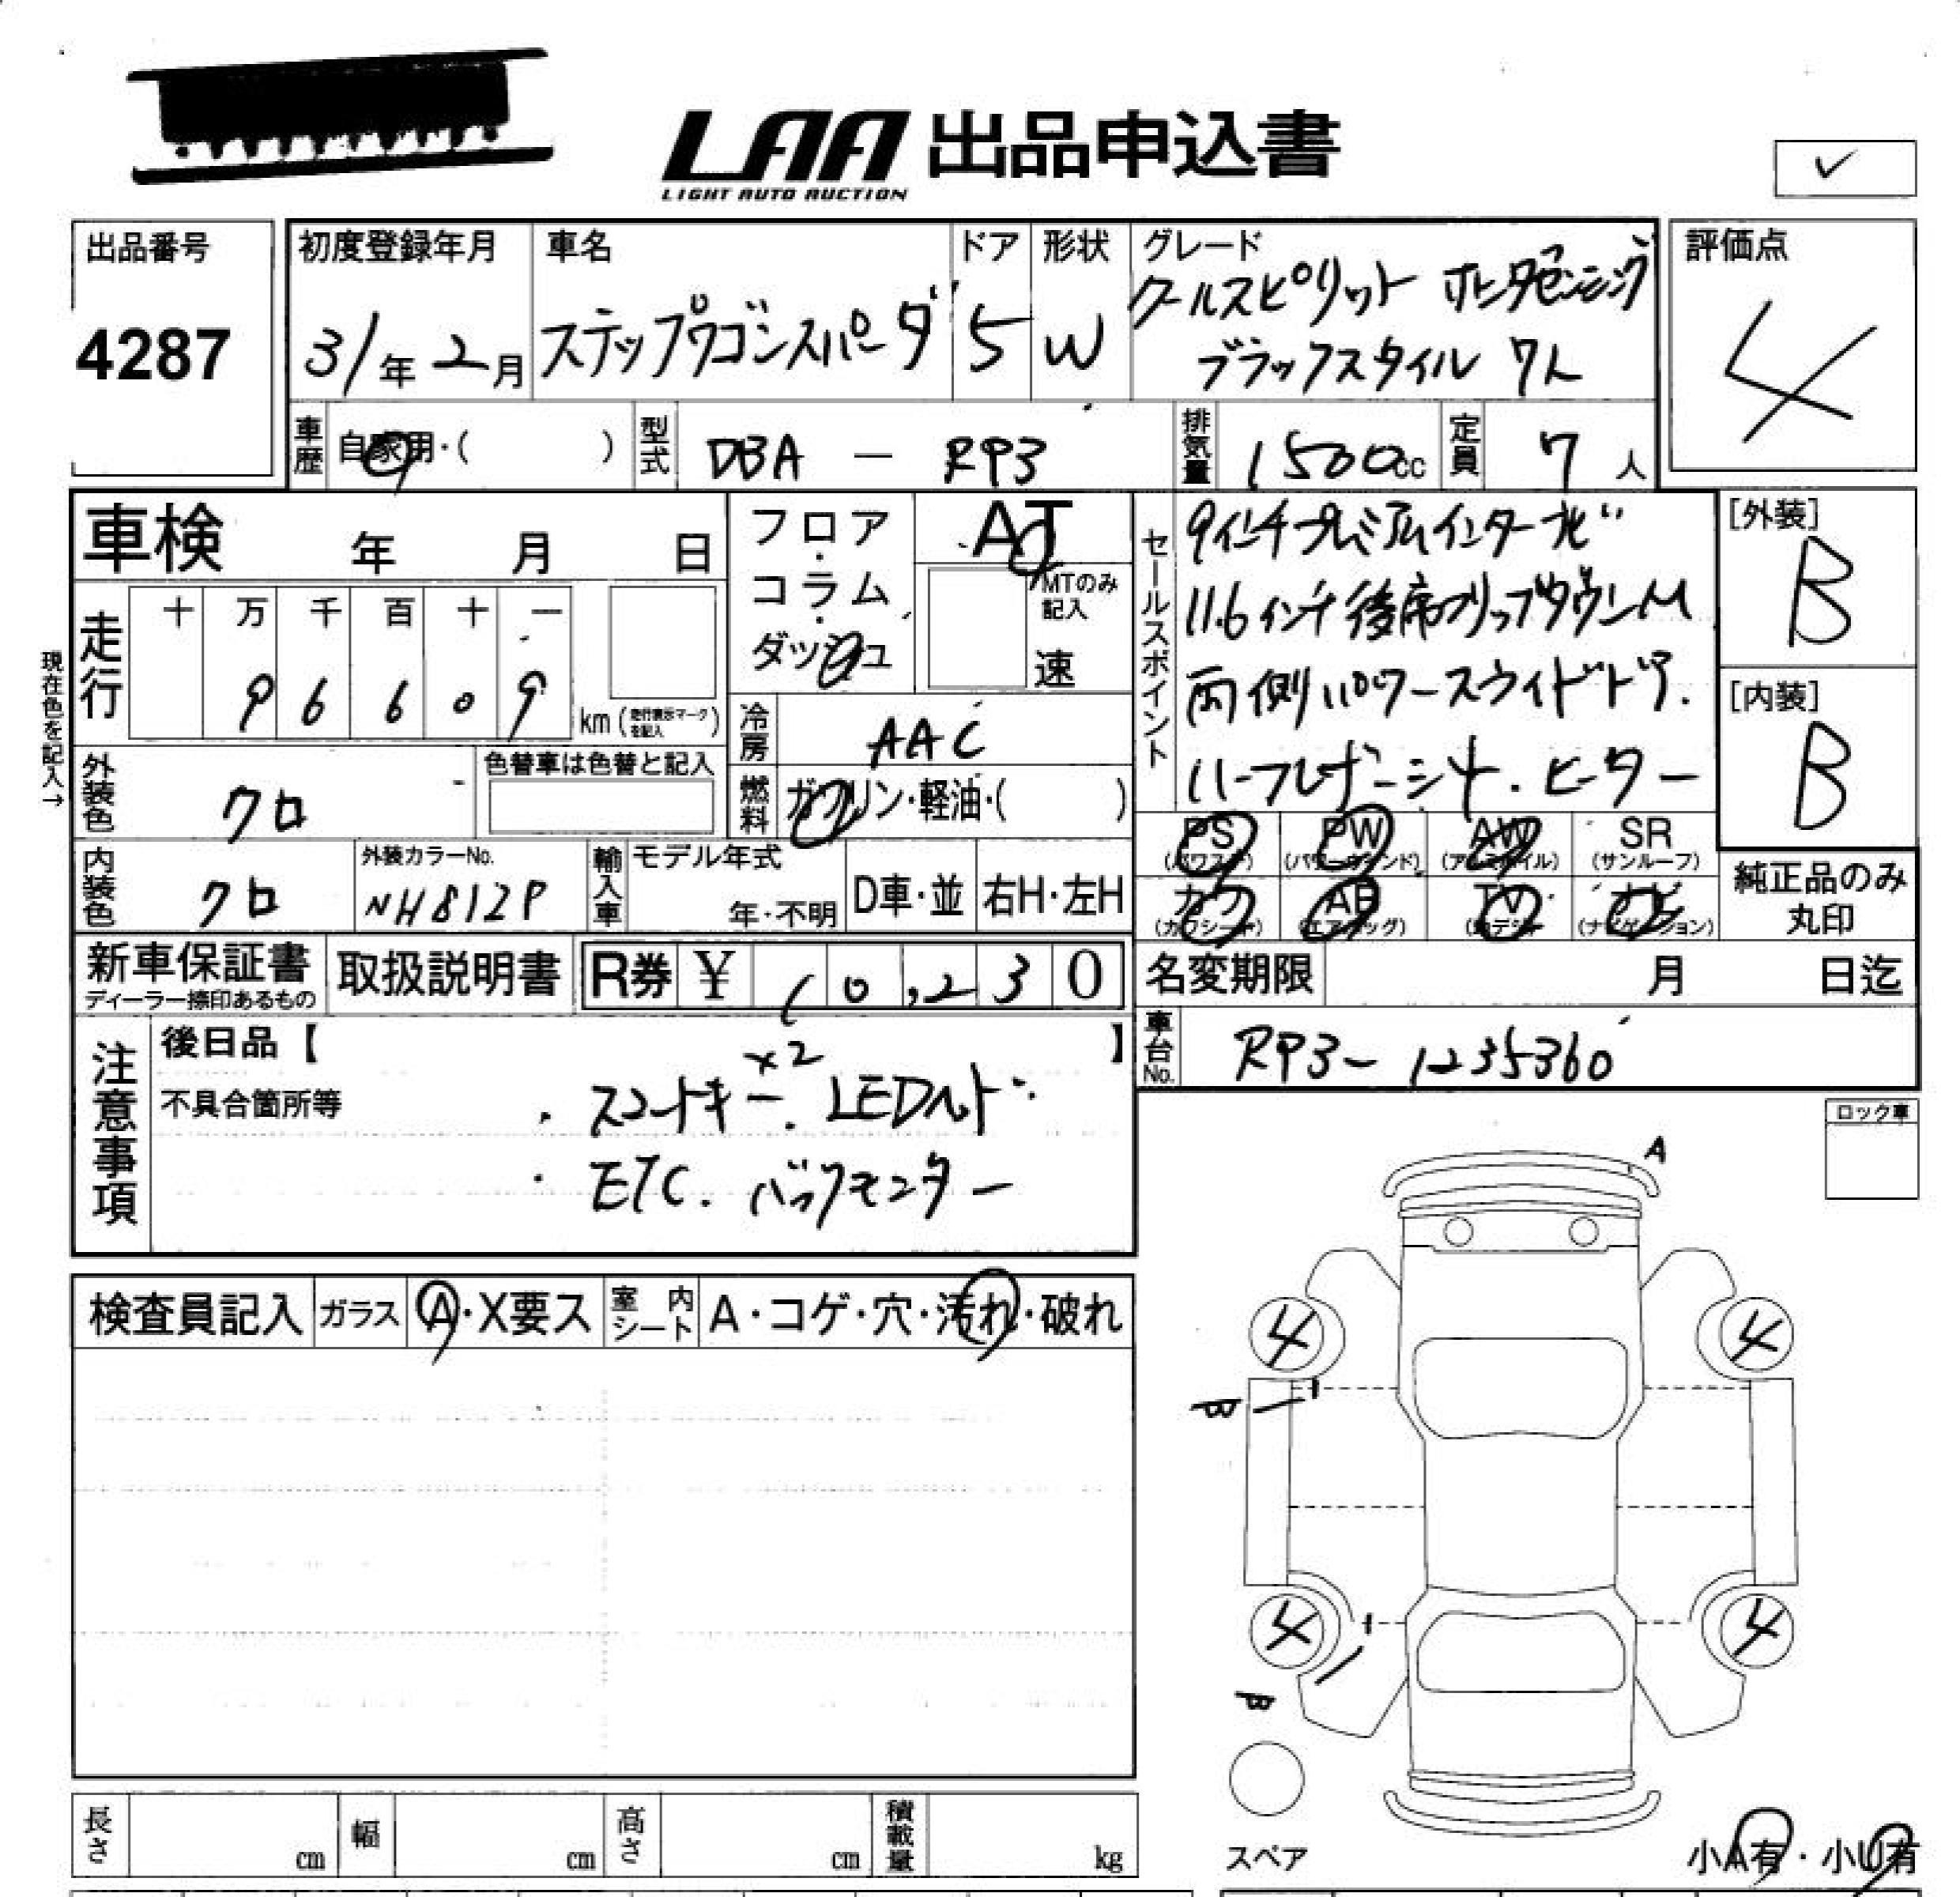 LAA 出品申込書
LIGHT AUTO AUCTION
出品番号
4287
初度登録年月
31年2月
車名
ステップワゴンスパーダ
ドア
5
形状
W
グレード
クールスピリット ホンダセンシング
ブラックスタイル 7人
評価点
4
車歴 自家用・( )
型式 DBA - RP3
排気量 1500cc
定員 7人
車検 年 月 日
フロア・コラム・ダッシュ
AT
MTのみ記入
速
セールスポイント
9インチプレミアムインターナビ
11.6インチ後席フリップダウンM
両側パワースライドドア.
ハーフレザーシート.ヒーター
[外装]
B
[内装]
B
現在色を記入→
走行
十 万 千 百 十 一
9 6 6 0 9
km(走行表示マークを記入)
冷房 AAC
燃料 ガソリン・軽油・( )
外装色 クロ
色替車は色替と記入
内装色 クロ
外装カラーNo.
NH812P
輸入車
モデル年式
年・不明
D車・並
右H・左H
PS (パワステ)
PW (パワーウィンド)
AW (アルミホイル)
SR (サンルーフ)
カワ (カワシート)
AB (エアバッグ)
TV
ナビ (ナビゲーション)
純正品のみ
丸印
新車保証書
ディーラー捺印あるもの
取扱説明書
R券 ¥ 10,230
名変期限 月 日迄
車台No. RP3-1235360
注意事項
後日品【 】
不具合箇所等
×2
・スマートキー. LEDヘッド
・ETC. バックモニター
ロック車
A
検査員記入
ガラス A・X要ス
室内シート A・コゲ・穴・汚れ・破れ
4
4
B
4
4
B
スペア
小A有・小U有
長さ cm
幅 cm
高さ cm
積載量 kg